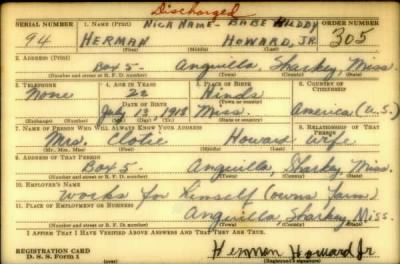 Discharged
SERIAL NUMBER 1. NAME (Print) NICK NAME - BABE HUDDY ORDER NUMBER
94 HERMAN HOWARD, JR 305
(First) (Middle) (Last)
2. ADDRESS (Print)
Box 5- Anguilla, Sharkey, Miss.
(Number and street or R. F. D. number) (Town) (County) (State)
3. TELEPHONE 4. AGE IN YEARS 5. PLACE OF BIRTH 6. COUNTRY OF CITIZENSHIP
None 22 Hinds
DATE OF BIRTH (Town or county)
July 19 1918 Miss. America (U.S.)
(Exchange) (Number) (Mo.) (Day) (Yr.) (State or country)
7. NAME OF PERSON WHO WILL ALWAYS KNOW YOUR ADDRESS 8. RELATIONSHIP OF THAT PERSON
Mrs. Howard Wife
(Mr., Mrs., Miss) (First) (Middle) (Last)
9. ADDRESS OF THAT PERSON
Box 5. Anguilla, Sharkey, Miss.
(Number and street or R. F. D. number) (Town) (County) (State)
10. EMPLOYER'S NAME
Works for himself (owns farm)
11. PLACE OF EMPLOYMENT OR BUSINESS
Anguilla, Sharkey Miss.
(Number and street or R. F. D. number) (Town) (County) (State)
I AFFIRM THAT I HAVE VERIFIED ABOVE ANSWERS AND THAT THEY ARE TRUE.
REGISTRATION CARD
D. S. S. Form 1 Herman Howard Jr
(Registrant's signature)